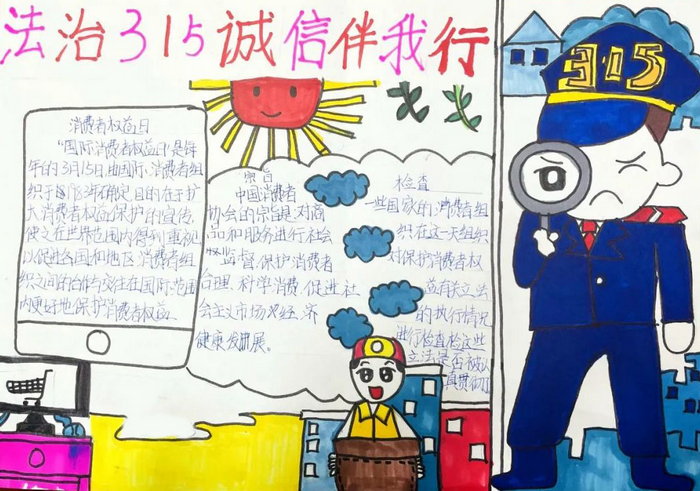 法治315诚信伴我行
315
消费者权益日
"国际消费者权益日"是每
年的3月15日,由国际消费者组
织于1983年确定,目的在于扩
大消费者权益保护的宣传,
使之在世界范围内得到重视,
以促进各国和地区消费者组
织之间的合作与交往,在国际范围
内更好地保护消费者权益
宗旨
中国消费者
协会的宗旨是:对商
品和服务进行社会
监督,保护消费者
合理、科学消费,促进社
会主义市场经济
健康发展。
检查
一些国家的消费者组
织在这一天组织
对保护消费者权
益有关立法
的执行情况
进行检查,检这些
立法是否被认
真贯彻